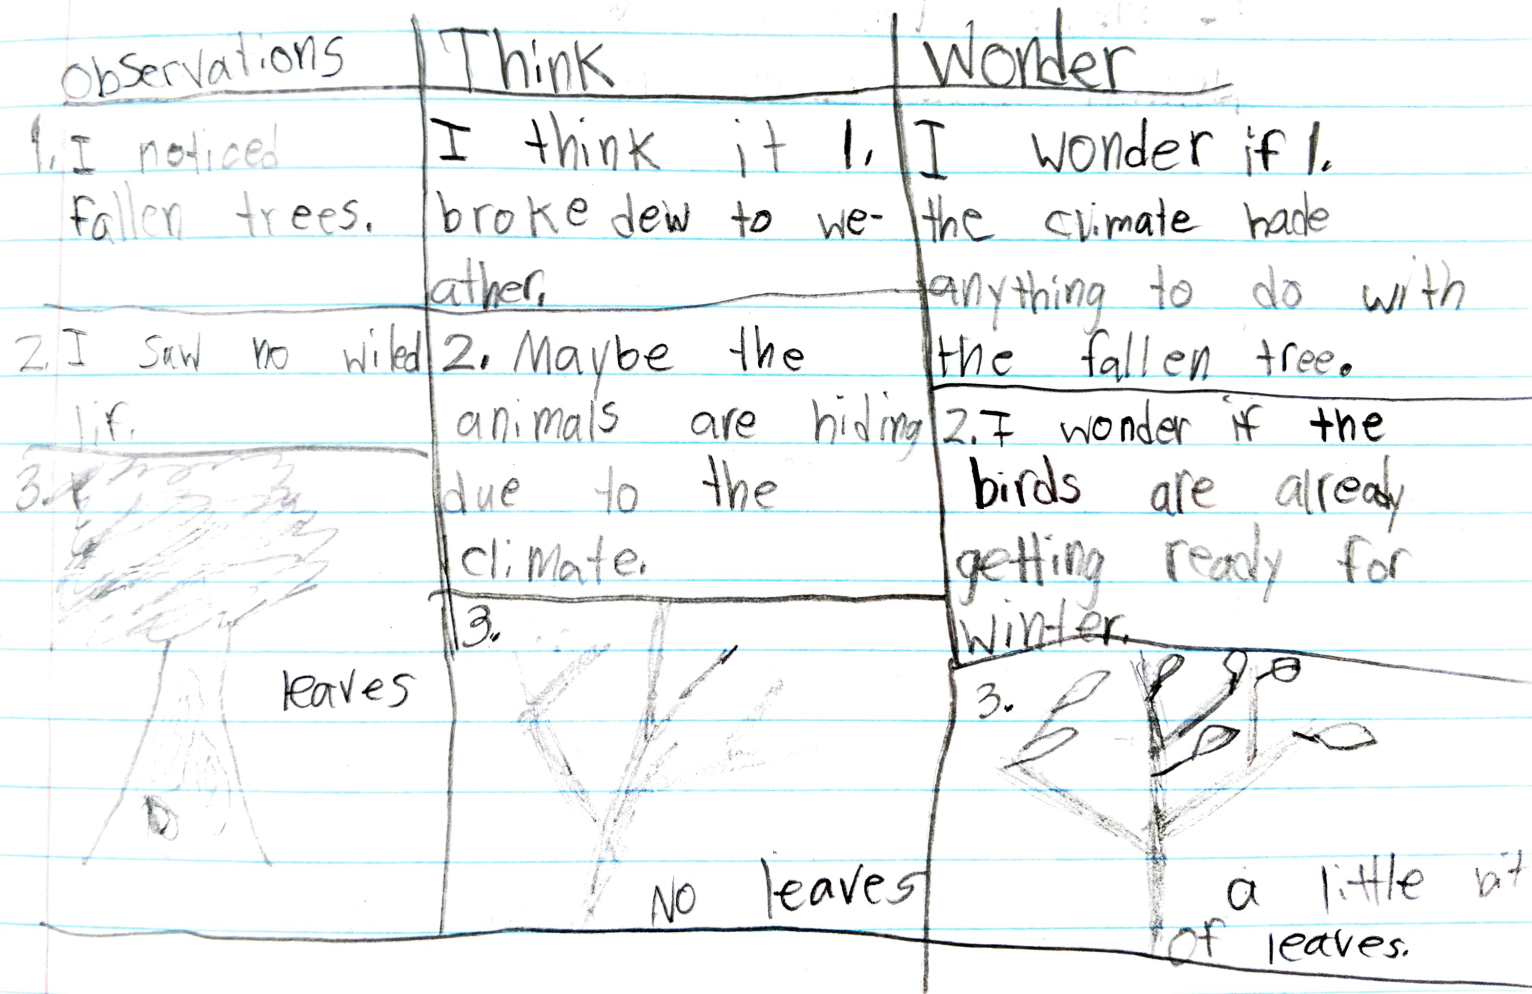 Observations
1. I noticed
Fallen trees.
2. I saw no wiled
lif.
3.
leaves
Think
I think it 1.
broke dew to we-
ather.
2. Maybe the
animals are hiding
due to the
climate.
3.
No leaves
Wonder
I wonder if 1.
the climate hade
anything to do with
the fallen tree.
2. I wonder if the
birds are already
getting ready for
winter.
3.
a little bit
of leaves.